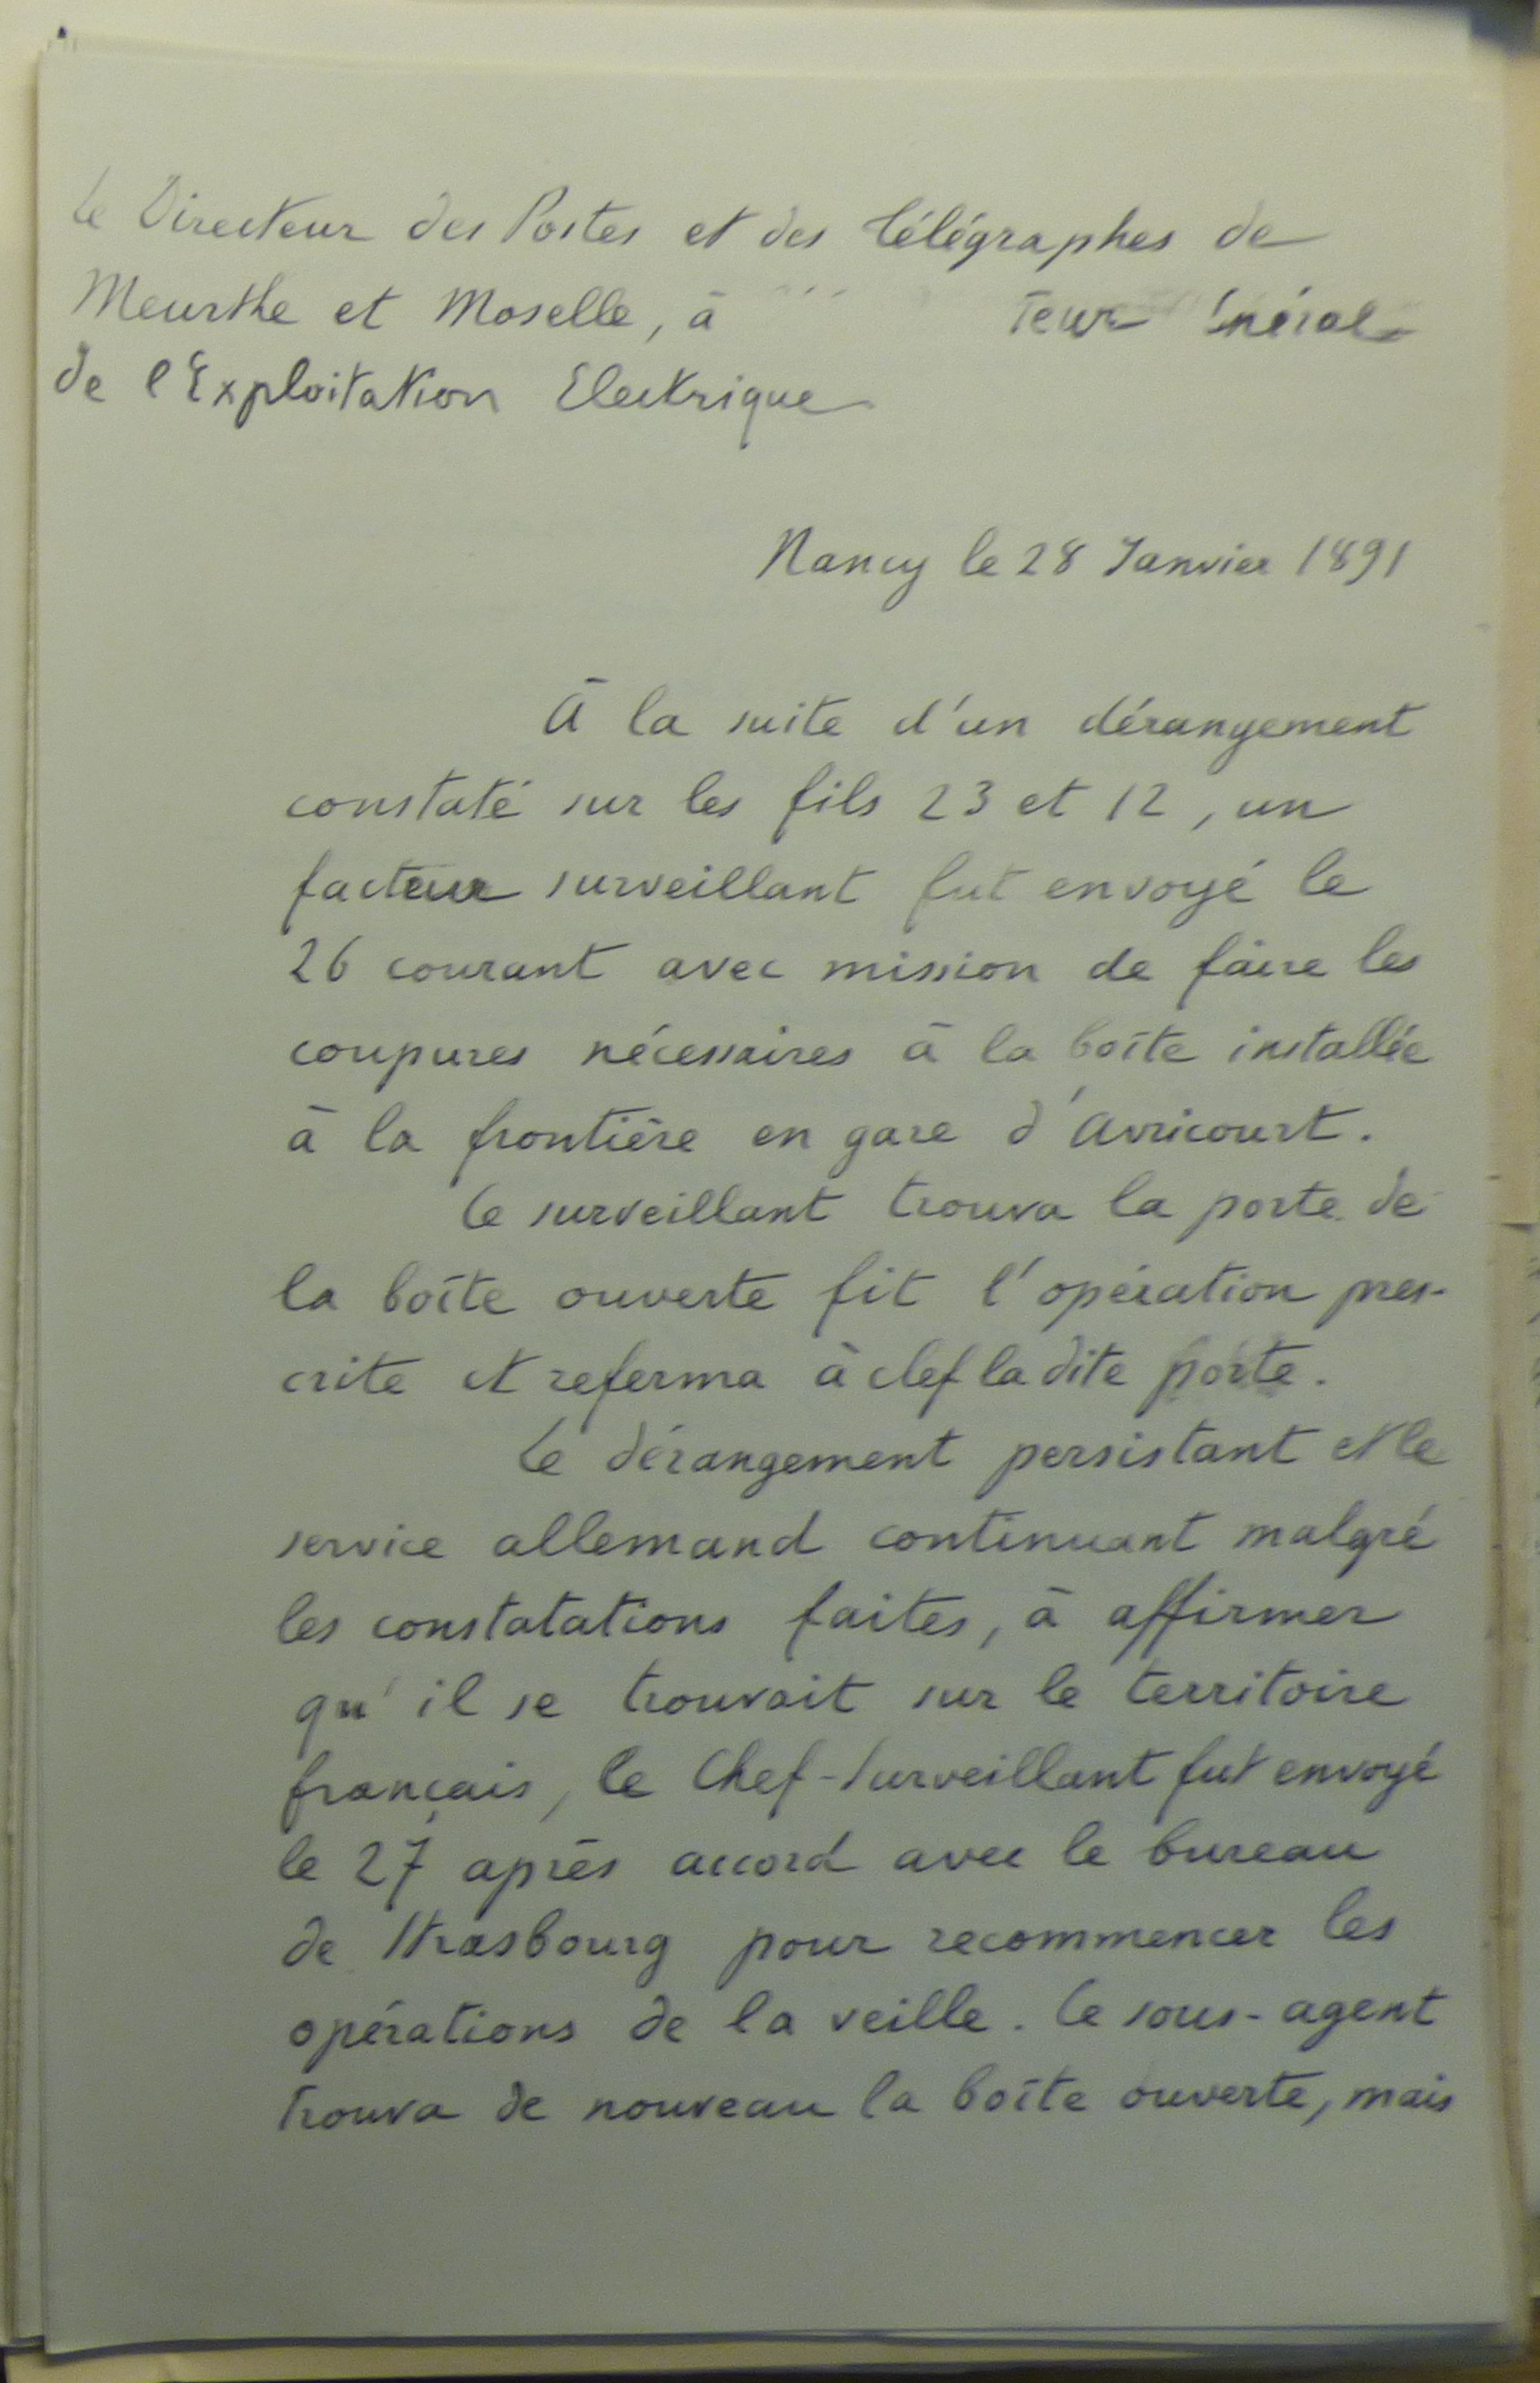 Le Directeur des Postes et des Télégraphes de
Meurthe et Moselle, à teur
de l'Exploitation Electrique
Nancy le 28 Janvier 1891
À la suite d'un dérangement
constaté sur les fils 23 et 12, un
facteur surveillant fut envoyé le
26 courant avec mission de faire les
coupures nécessaires à la boîte installée
à la frontière en gare d'Avricourt.
Le surveillant trouva la porte de
la boîte ouverte fit l'opération pres-
crite et referma à clef la dite porte.
Le dérangement persistant et le
service allemand continuant malgré
les constatations faites, à affirmer
qu'il se trouvait sur le territoire
français, le Chef-Surveillant fut envoyé
le 27 après accord avec le bureau
de Strasbourg pour recommencer les
opérations de la veille. Le sous-agent
trouva de nouveau la boîte ouverte, mais